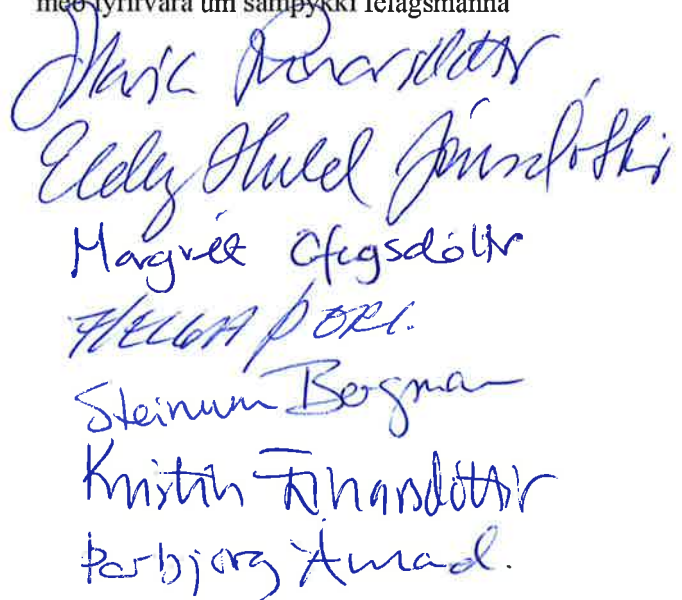 með fyrirvara um samþykki félagsmanna
Maria Rúnarsdóttir
Huld Jónsdóttir
Margrét Ófeigsdóttir
HELGA ÞÓRL.
Steinunn Bergman
Kristín Einarsdóttir
Þorbjörg Árnad.